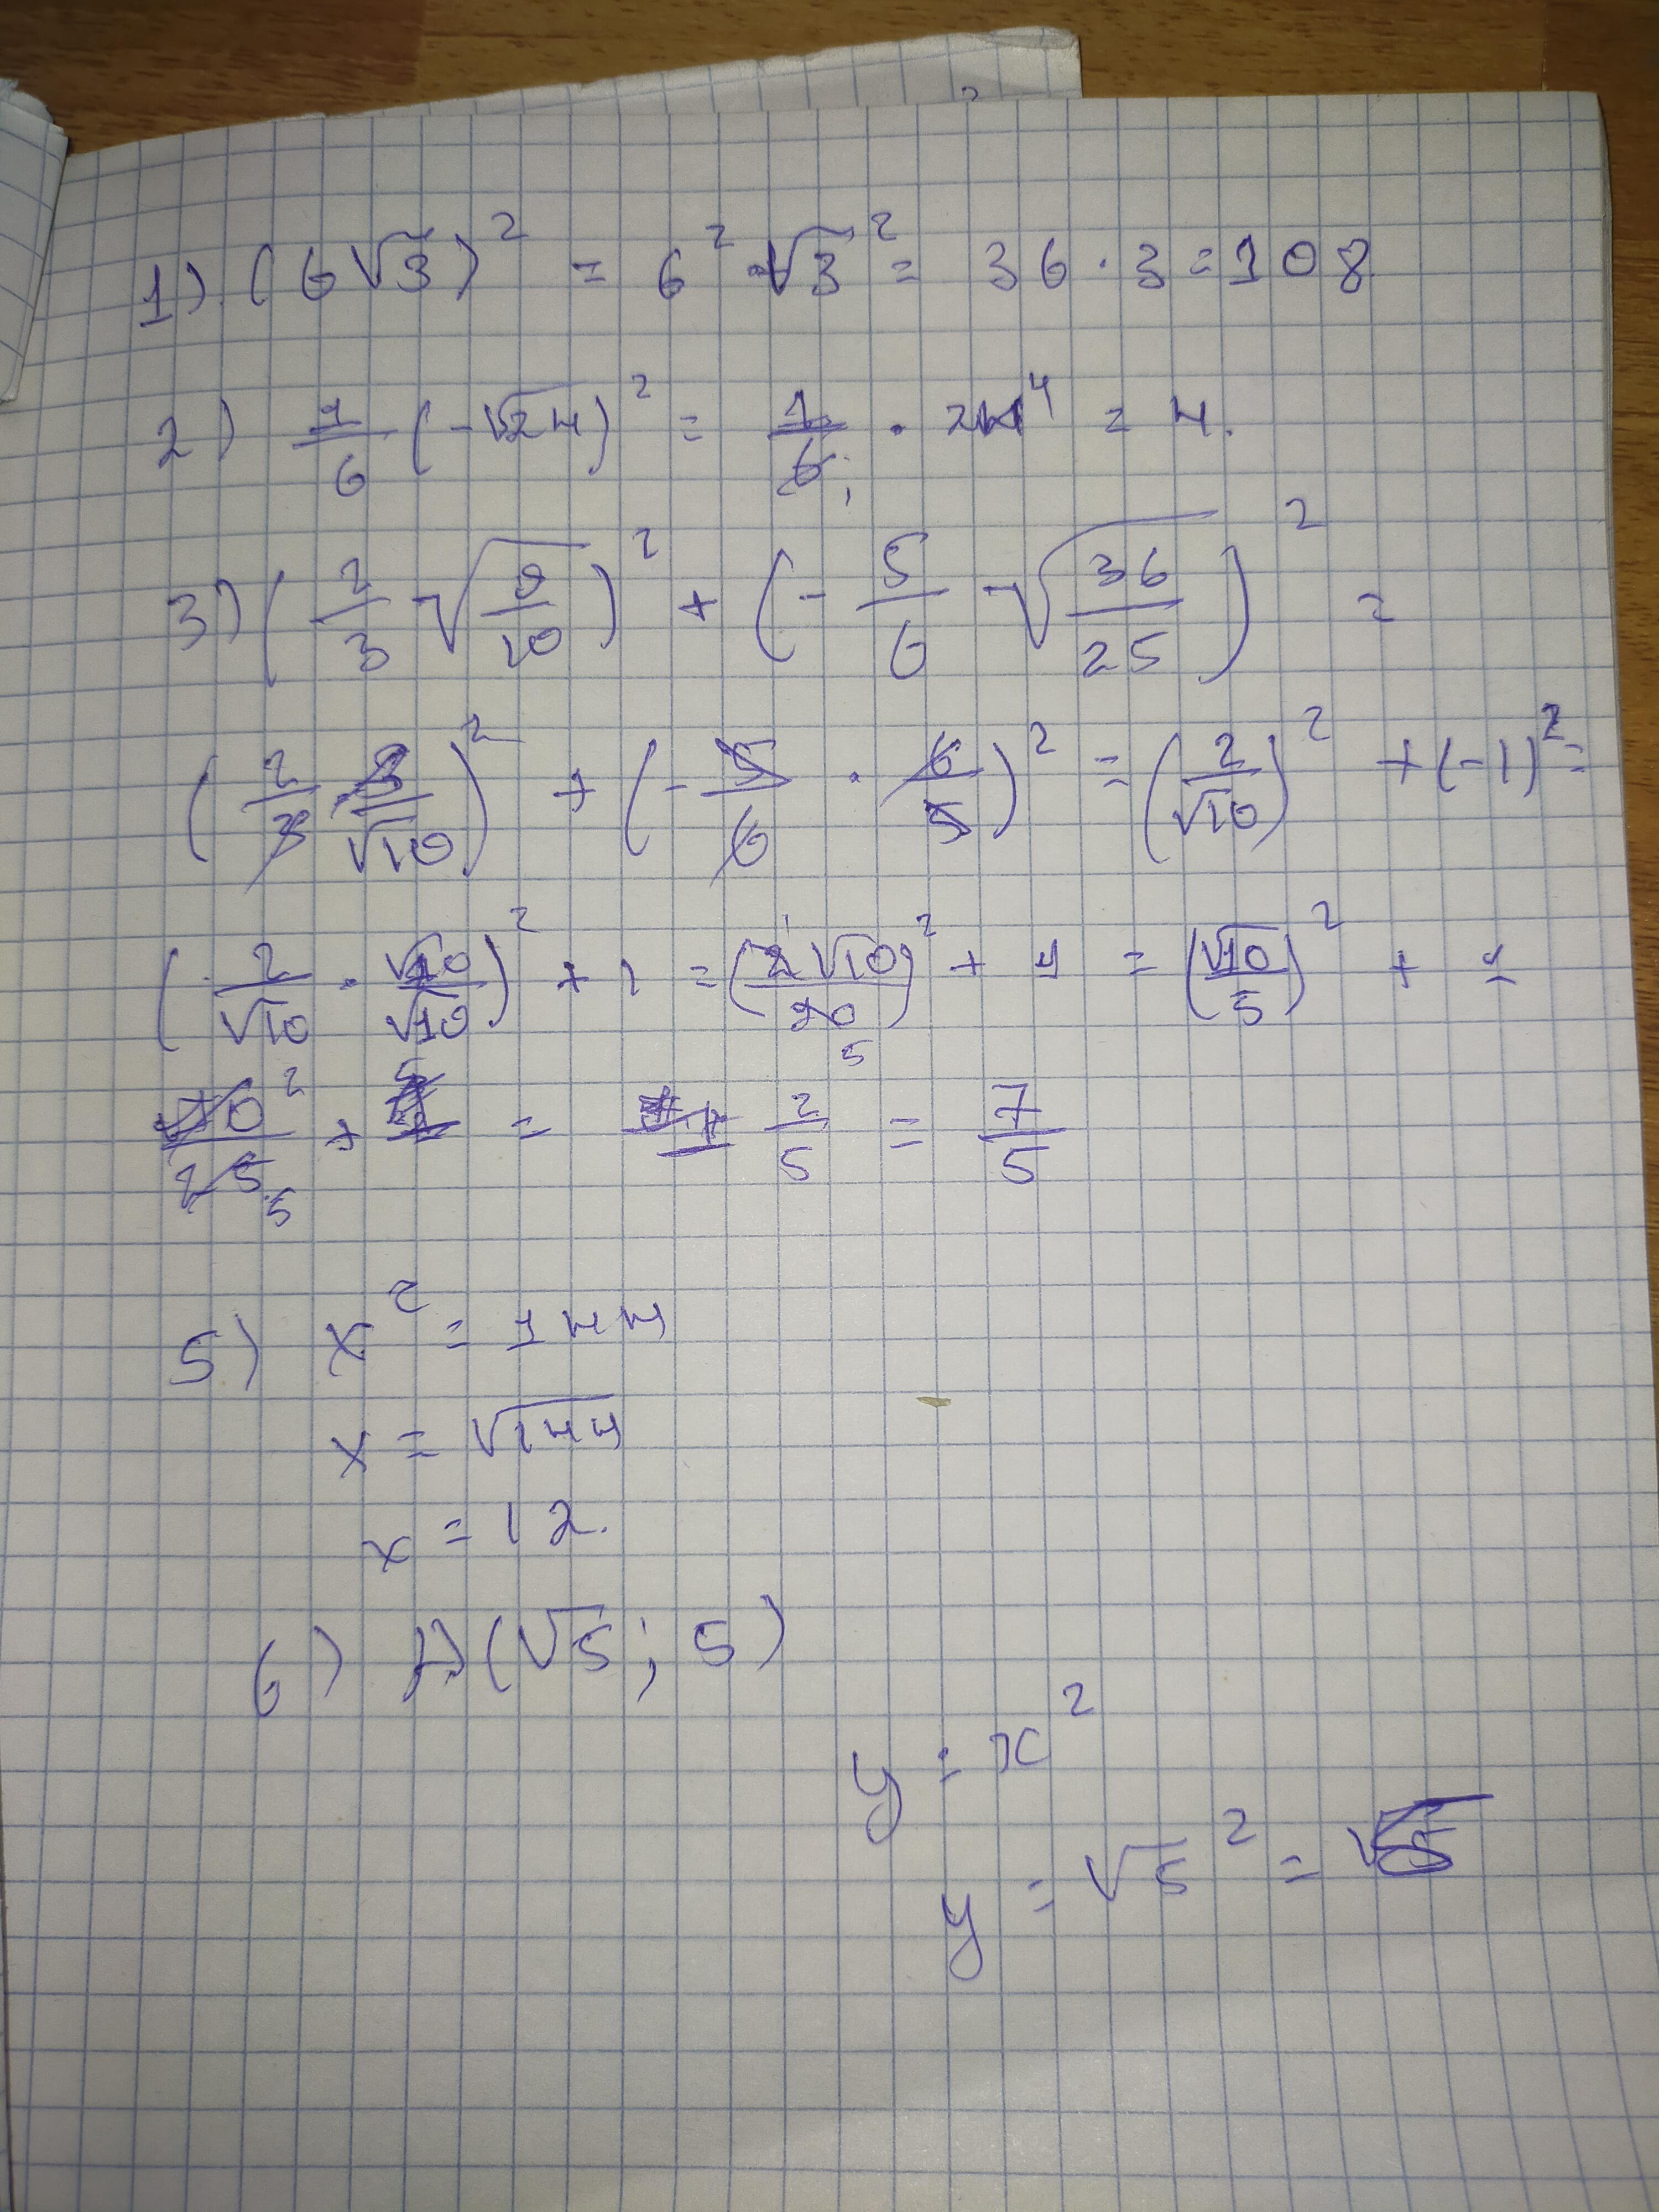 1) (6√3)² = 6²·√3² = 36·3=108
2) 1/6 (-√24)² = 1/6 · 24⁴ = 4.
3) (2/3 √(9/10))² + (-5/6 √(36/25))² =
(2/3 3/√10)² + (-5/6 · 6/5)² = (2/√10)² + (-1)² =
(2/√10 · √10/√10)² + 1 = (2√10/10 5)² + 1 = (√10/5)² + 1
10²/25 5 + 1 5 = 2/5 = 7/5
5) x² = 144
x = √144
x = 12.
6) A(√5; 5)
y = x²
y = √5² =